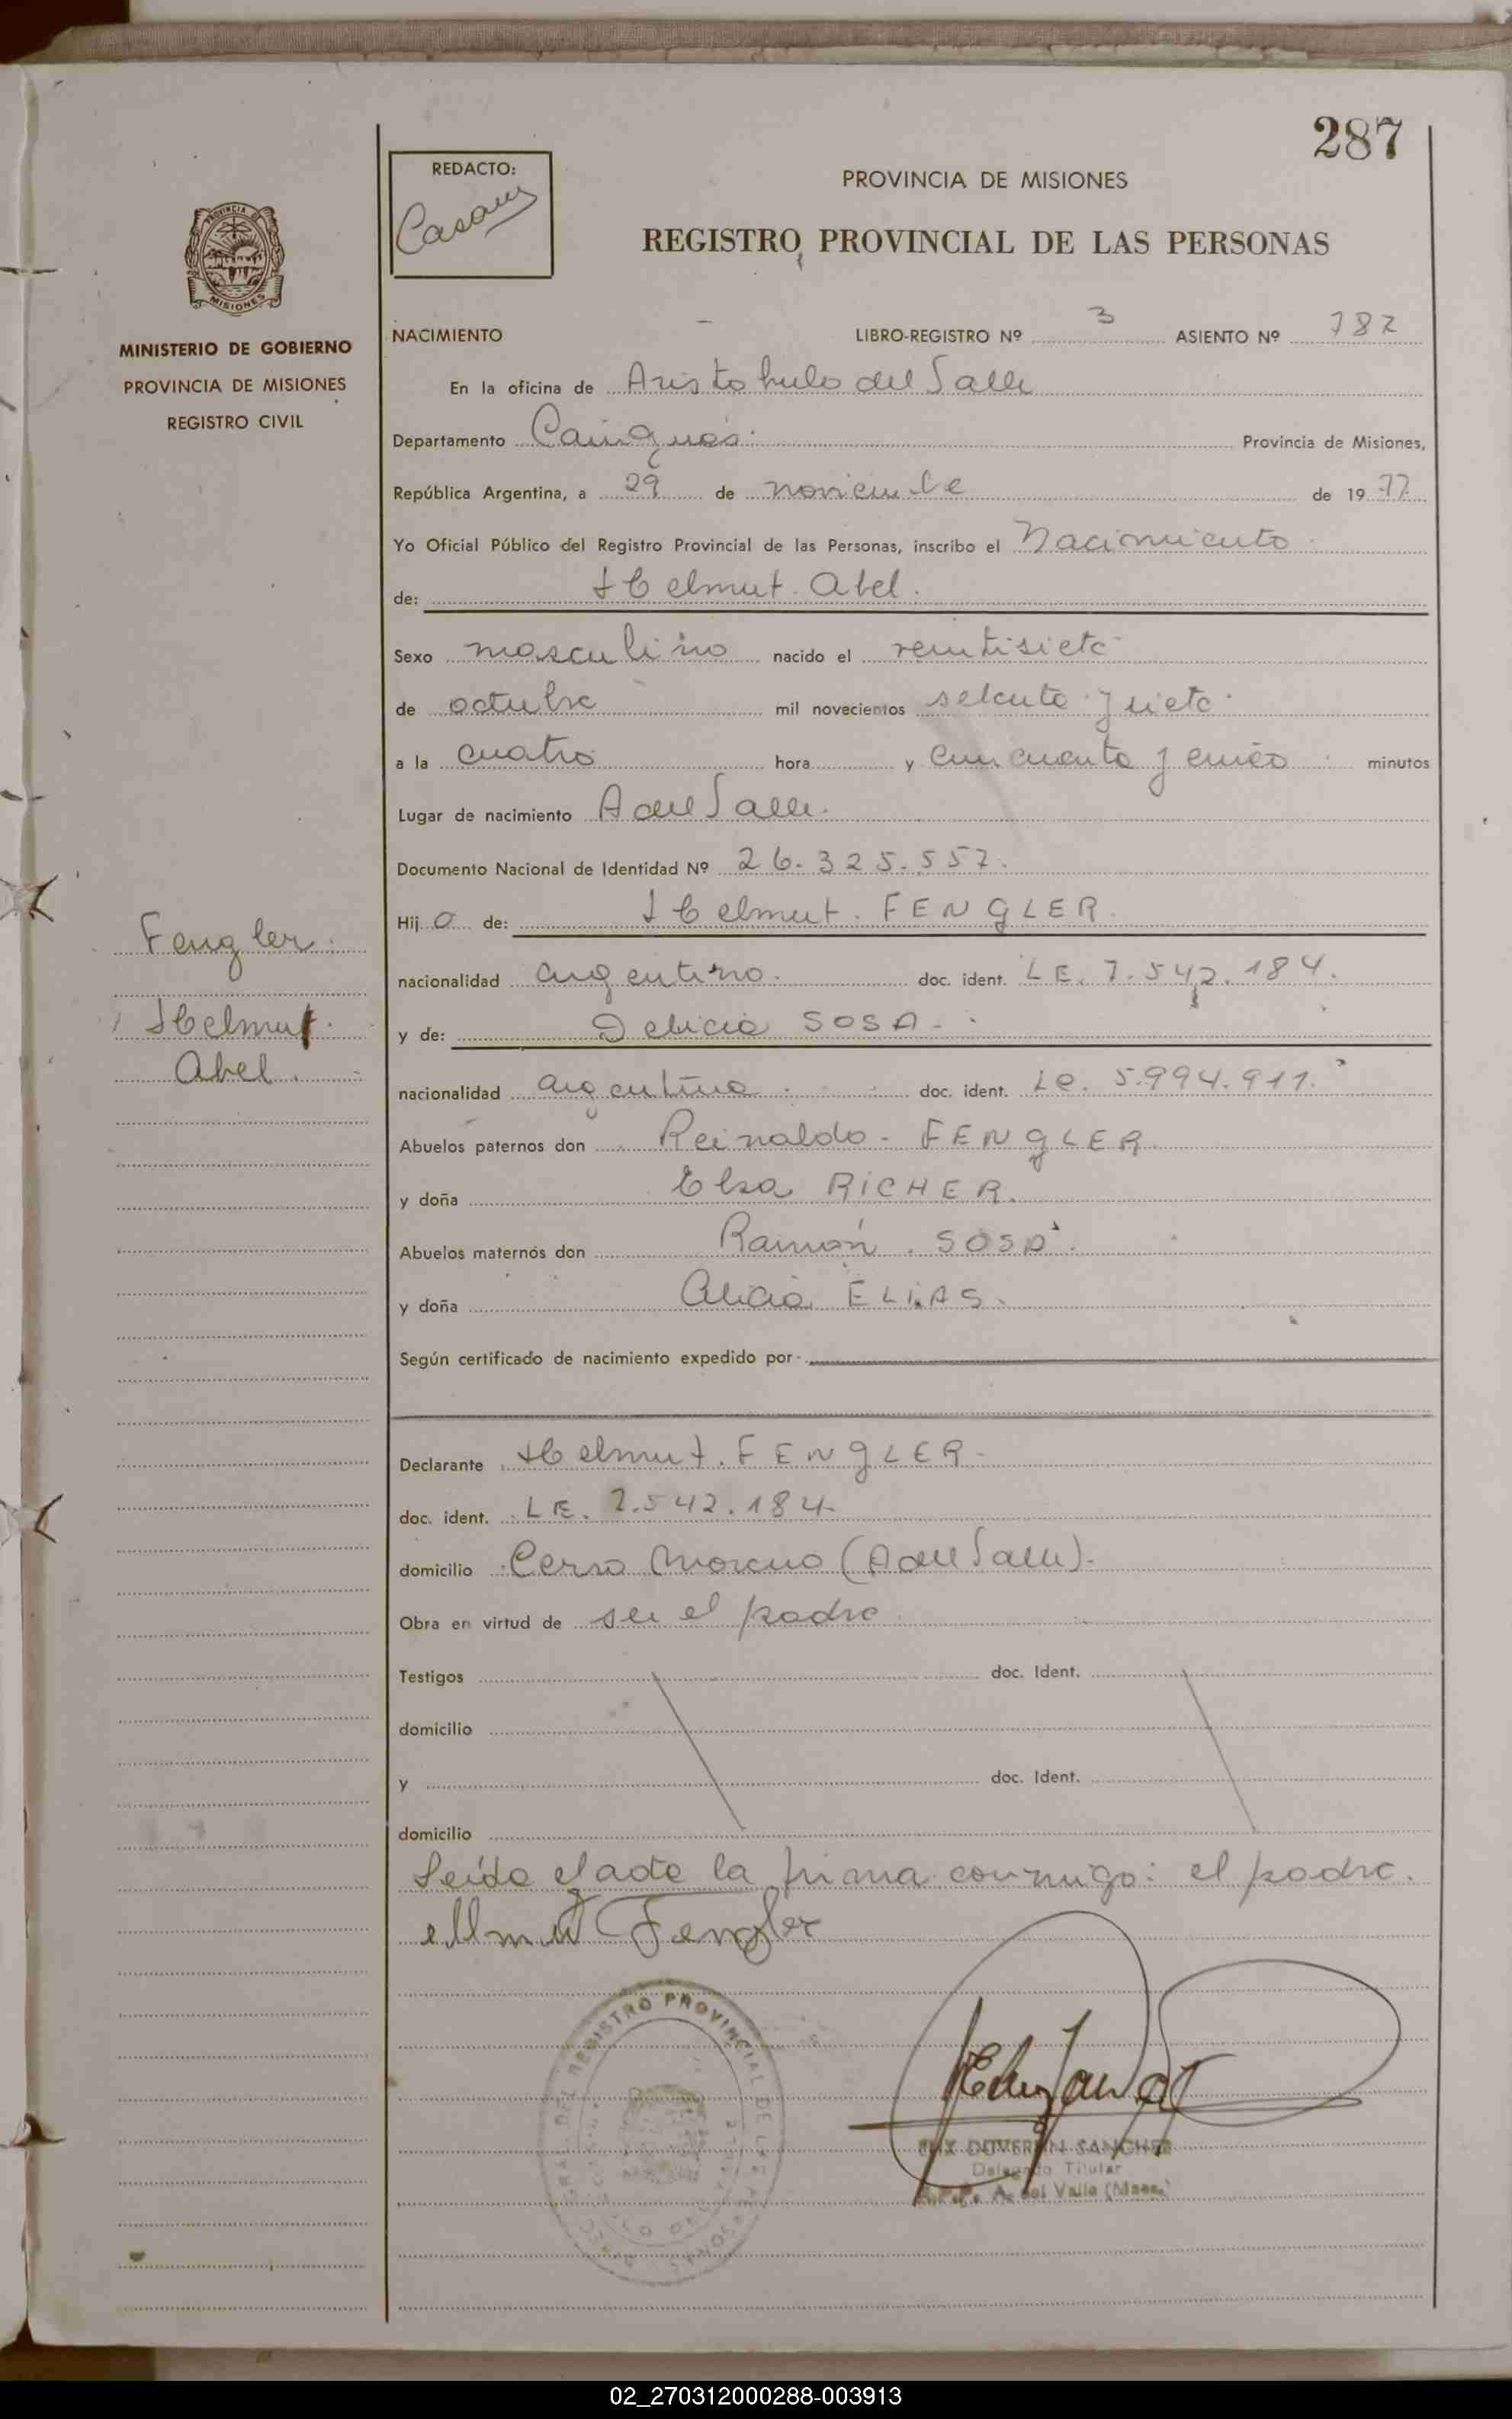 287
REDACTO:
PROVINCIA DE MISIONES
REGISTRO PROVINCIAL DE LAS PERSONAS
PROVINCIA DE
MISIONES
MINISTERIO DE GOBIERNO
PROVINCIA DE MISIONES
REGISTRO CIVIL
NACIMIENTO LIBRO-REGISTRO Nº 3 ASIENTO Nº 787
En la oficina de Aristobulo del Valle
Departamento Cainguás. Provincia de Misiones,
República Argentina, a 29 de noviembre de 1977
Yo Oficial Público del Registro Provincial de las Personas, inscribo el Nacimiento
de: Helmut Abel.
Sexo masculino nacido el veintisiete
de octubre mil novecientos setenta y siete
a la cuatro hora y cincuenta y cinco minutos
Lugar de nacimiento A del Valle.
Documento Nacional de Identidad Nº 26.325.557.
Hij o de: Helmut. FENGLER.
nacionalidad argentino. doc. ident. LE. 7.542.184.
y de: Delicia SOSA.
nacionalidad argentina. doc. ident. LC. 5.994.911.
Abuelos paternos don Reinaldo - FENGLER
y doña Elsa RICHER.
Abuelos maternos don Ramón. SOSA.
y doña Alicia ELIAS.
Fengler.
Helmut.
Abel.
Según certificado de nacimiento expedido por
Declarante Helmut. FENGLER-
doc. ident. LE. 7.542.184
domicilio Cerro Moreno (A del Valle).
Obra en virtud de ser el padre
Testigos doc. Ident.
domicilio
y doc. Ident.
domicilio
Leída el acta la firma conmigo: el padre.
Fengler
REGISTRO PROVINCIAL DE LAS PERSONAS
SANCHEZ
Delegado Titular
A. del Valle (Mnes.)
02_270312000288-003913